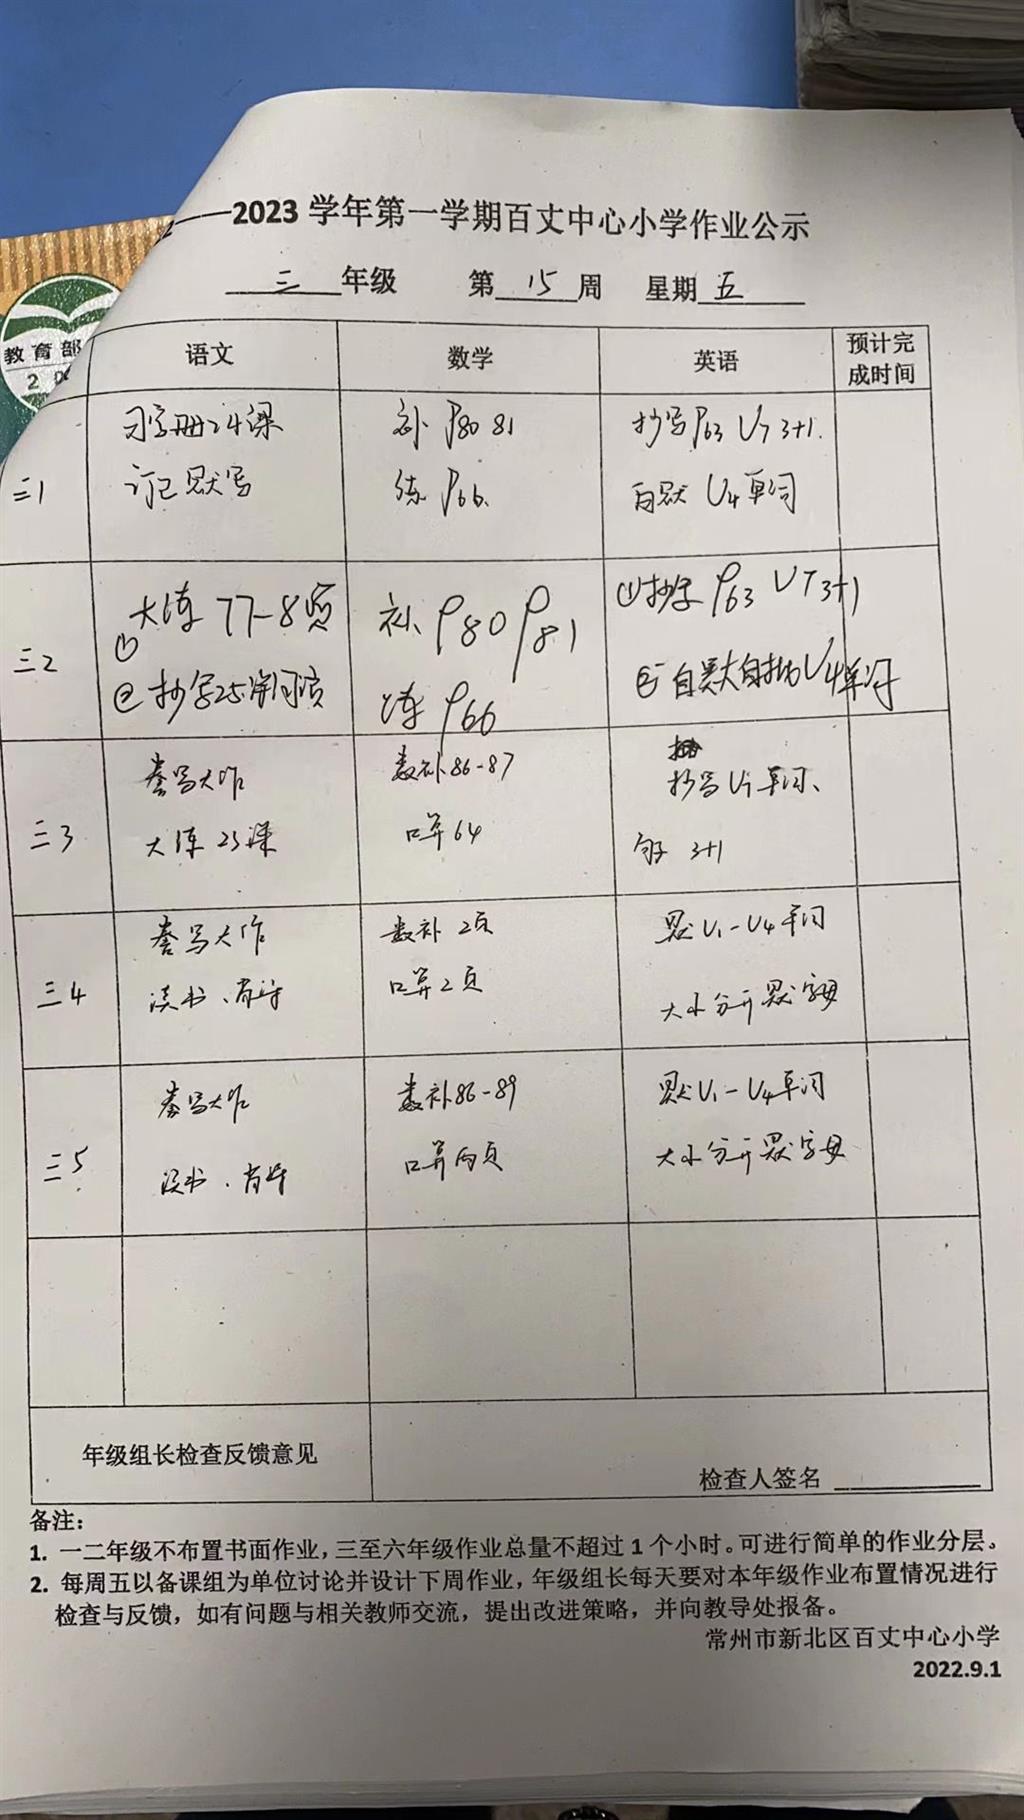 2——2023 学年第一学期百丈中心小学作业公示
三 年级 第 15 周 星期 五
教育部
语文 数学 英语 预计完成时间
三1
习字册24课
订正默写
补 P80 81
练 P66.
抄写P63 U7 3+1.
自默 U4单词
三2
① 大练 77-8页
② 抄写25课词语
补 P80 P81
练 P66
①抄写 P63 U7 3+1
② 自默U4单词
三3
誊写大作
大练 25课
数补86-87
口算 64
抄写U7单词、
句子 3+1
三4
誊写大作
读书、背诗
数补 2页
口算2页
默U1-U4单词
大小分开默字母
三5
誊写大作
读书、背诗
数补86-89
口算两页
默U1-U4单词
大小分开默字母
年级组长检查反馈意见
检查人签名
备注：
1. 一二年级不布置书面作业，三至六年级作业总量不超过 1 个小时。可进行简单的作业分层。
2. 每周五以备课组为单位讨论并设计下周作业，年级组长每天要对本年级作业布置情况进行
检查与反馈，如有问题与相关教师交流，提出改进策略，并向教导处报备。
常州市新北区百丈中心小学
2022.9.1